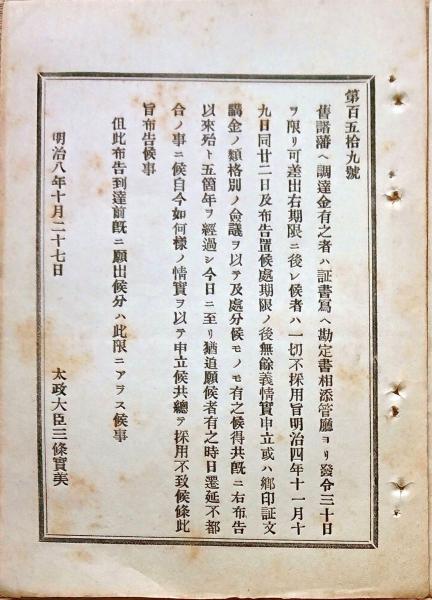 第百五拾九號
舊諸藩ヘ調達金有之者ハ証書寫ヘ勘定書相添管廳ヨリ發令三十日
ヲ限リ可差出右期限ニ後レ候者ハ一切不採用旨明治四年十一月十
九日同廿二日及布告置候處期限ノ後無餘義情實申立或ハ鄕印証文
講金ノ類格別ノ僉議ヲ以テ及處分候モノモ有之候得共既ニ右布告
以來殆ト五箇年ヲ經過シ今日ニ至リ猶追願候者有之時日遷延不都
合ノ事ニ候自今如何樣ノ情實ヲ以テ申立候共總テ採用不致候條此
旨布告候事
但此布告到達前既ニ願出候分ハ此限ニアラス候事
明治八年十月二十七日
太政大臣三條實美